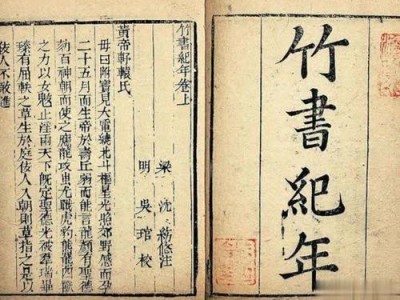 竹書紀年
竹書紀年卷上
梁 沈約注
明 吳琯校
黃帝軒轅氏
母曰附寶見大電繞北斗樞星光照郊野感而孕
二十五月而生帝於壽丘弱而能言龍顏有聖德
劾百神朝而使之應龍攻蚩尤戰虎豹熊羆四
之力以女魃止淫雨天下既定聖德光被羣瑞畢
臻有屈軼之草生於庭佞人入朝則草指之是以
佞人不敢進